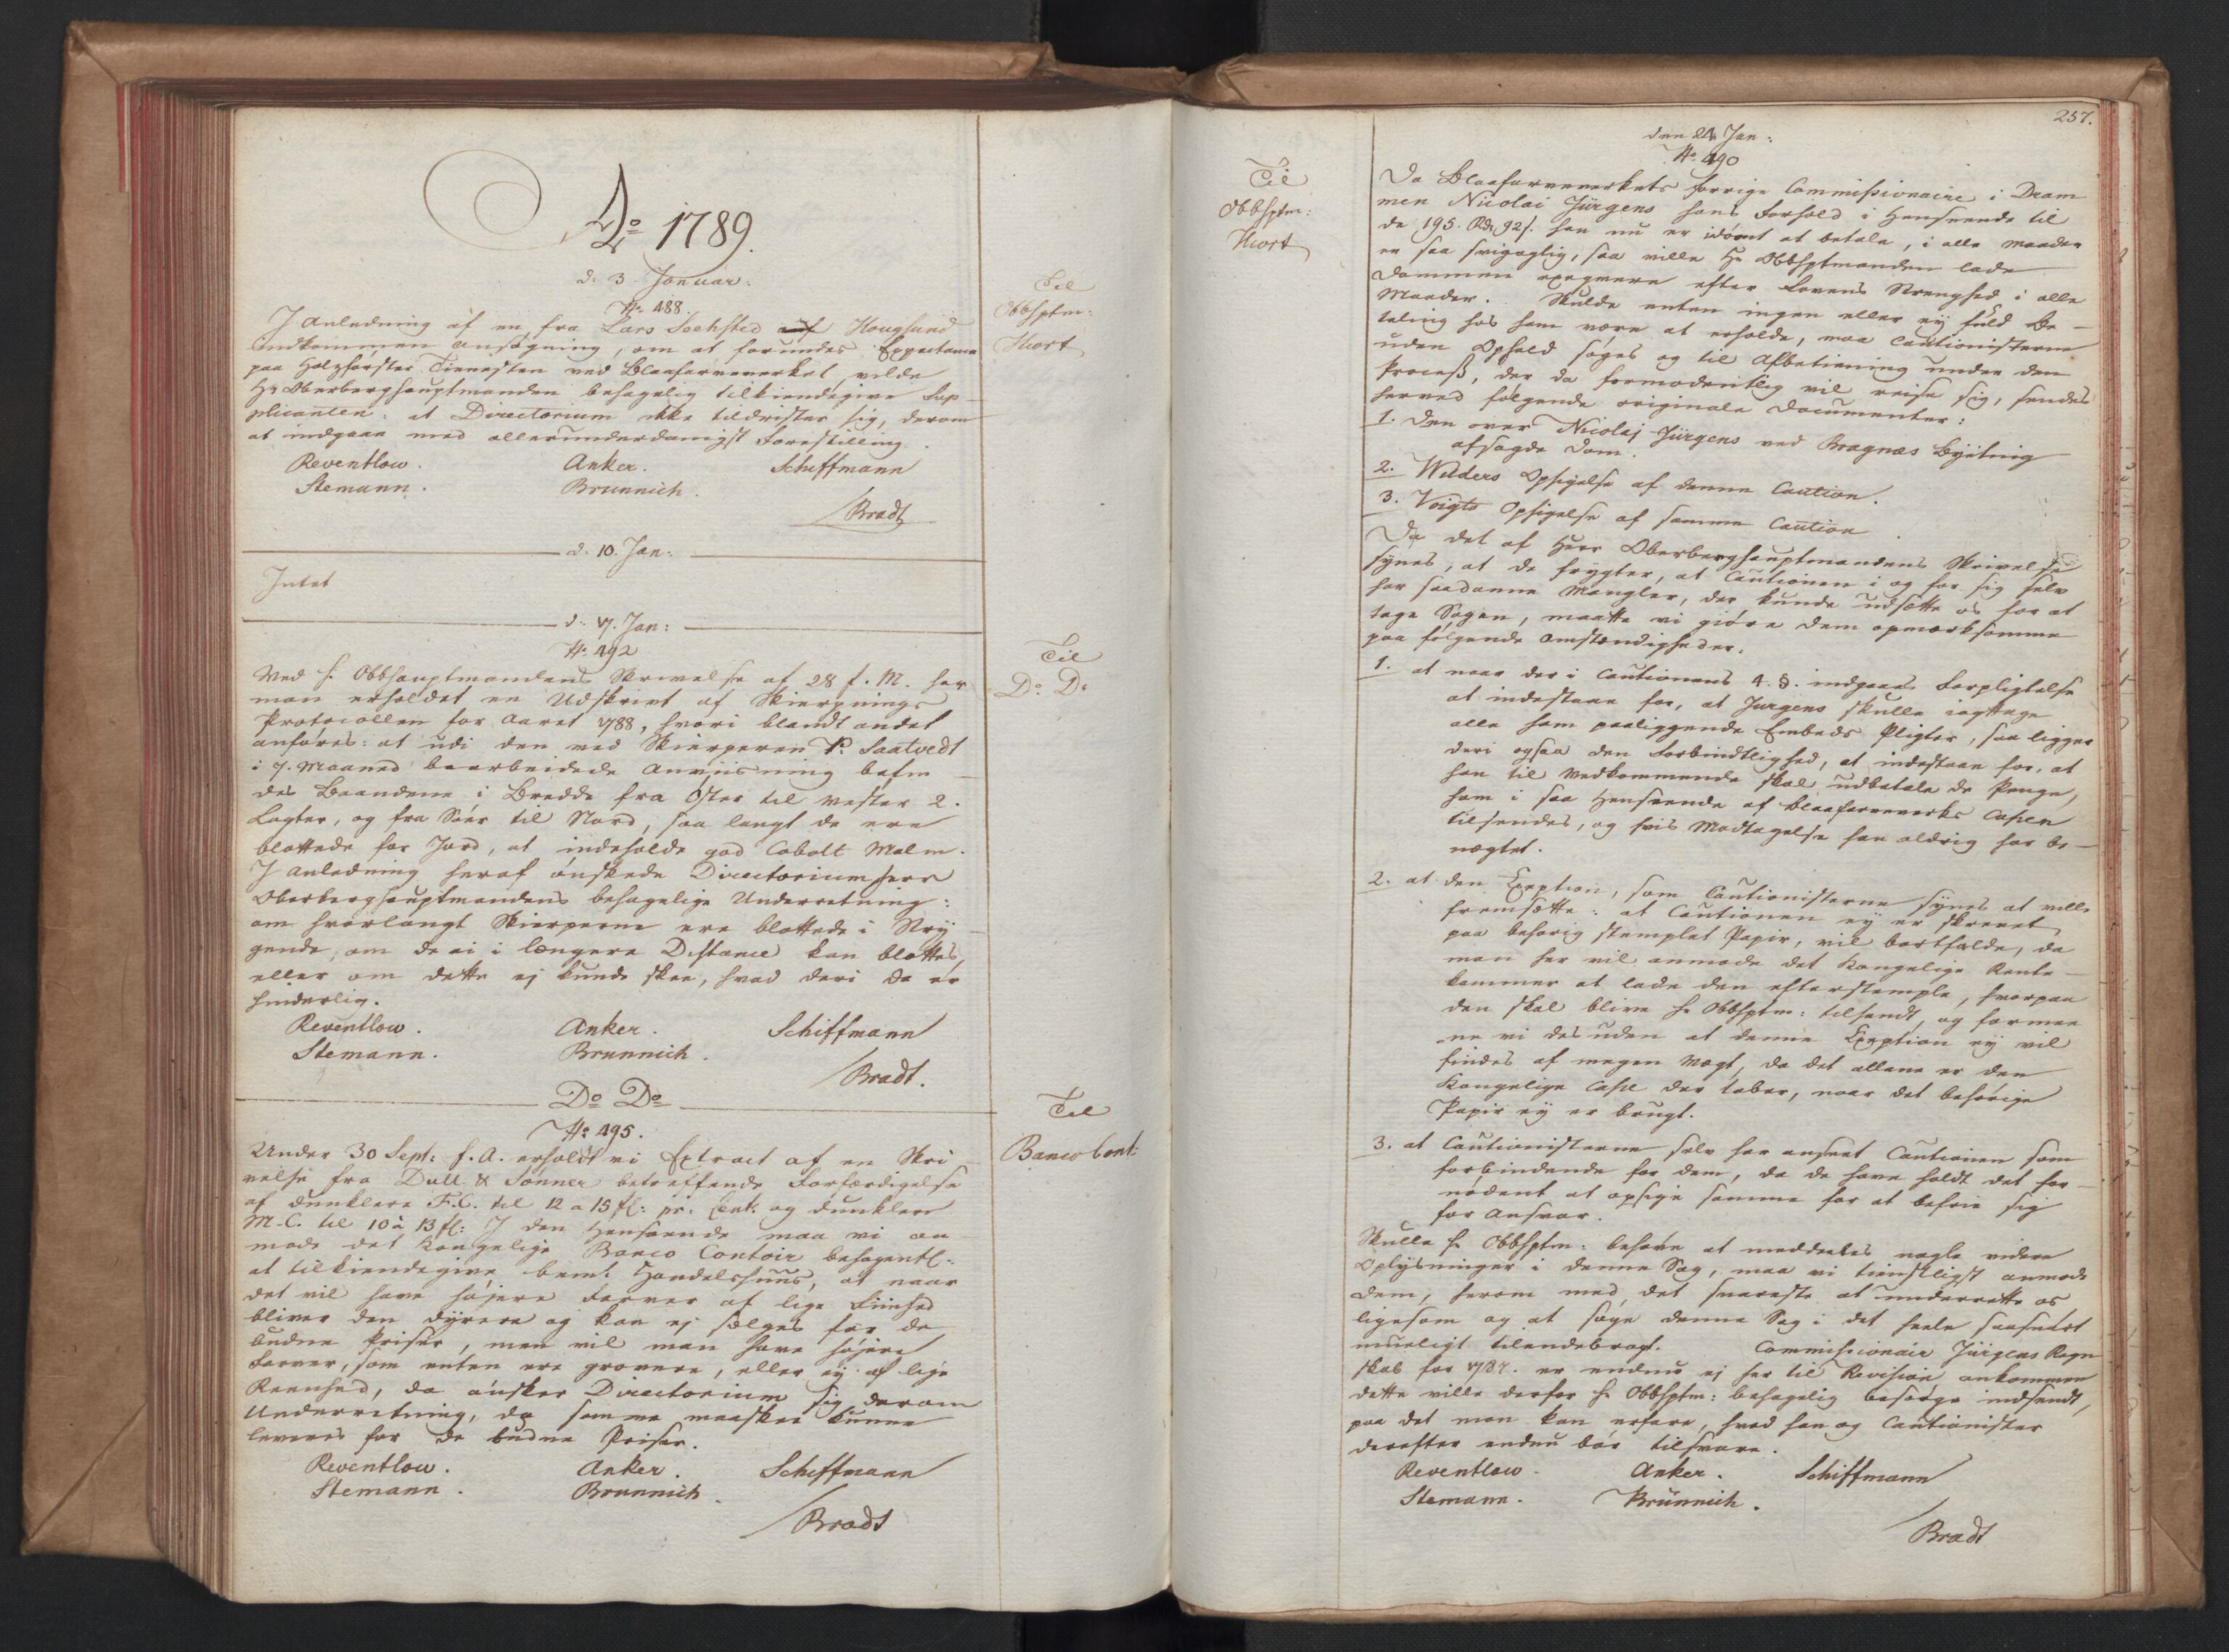 Ao 1789.
d. 3 Januar.
No. 488.
I Anledning af en fra Lars Sechsted auf Hougsund
indkommen Ansögning, om at forundes Expectance
paa Holzförster Tienesten ved Blaafarveverket vilde
Hr Oberberghauptmanden behagelig tilkiendegive Sup-
plicanten: at Directorium ikke tildrister sig, derom
at indgaae med allerunderdanigst Forestilling.
Reventlow. Anker. Schiffmann
Stemann. Brunnich.
Bradt
Til
Obbhptm:
Hiort
d. 10. Jan:
Intet
d. 17. Jan:
No. 492
Til
Do. Do
Med Hr. Obbhauptmandens Skrivelse af 28 f. M. har
man erholdet en Udskrivt af Skierpnings
Protocollen for Aaret 1788, hvori blandt andet
anföres: at udi den ved Skierperen P. Saatvedt
i 7. Maaned bearbeidede Anviisning befin-
des Baandene i Bredde fra Öster til Vester 2.
Lagter, og fra Söer til Nord, saa langt de ere
blottede for Jord, at indeholde god Cobolt Malm.
I Anledning heraf önskede Directorium Herr
Oberberghauptmandens behagelige Underretning:
om hvorlangt Skierpene ere blottede i Stry-
gende, om de ei i længere Distance kan blottes,
eller om dette ej kunde skee, hvad deri da er
hinderlig.
Reventlow. Anker. Schiffmann
Stemann. Brunnich.
Bradt.
Do Do
No. 495.
Til
Banco Cont:
Under 30 Sept: f. A. erholdt vi Extract af en Skri-
velse fra Dull & Sönner betreffende Forfærdigelse
af dunklere F.C. til 12 a 15 fl: pr. Cent. og dunklere
M.C. til 10 à 13 fl: I den Henseende maa vi an-
mode det Kongelige Banco Contoir behagentl:
at tilkiendegive bemte Handelshuus, at naar
det vil have höjere Farver af lige Fiinhed
bliver den dyrere og kan ej sælges for de
budne Priser, men vil man have höjere
Farver, som enten ere grovere, eller ey af lige
Reenhed, da önsker Directorium sig derom
Underretning, da samme maaskee kunne
leveres for de budne Priser.
Reventlow. Anker. Schiffmann
Stemann. Brunnich.
Bradt
257.
den 24 Jan:
No. 490
Til
Obbhptm:
Hiort
Da Blaafarveverkets forrige Commissionaire i Dram
men Nicolai Jürgens hans Forhold i Henseende til
de 195. Rdr 92 s. han nu er idömt at betale, i alle Maader
er saa svigagtig, saa ville Hr Obbhptmanden lade
Dommen exeqvere efter Lovens Strenghed i alle
Maader. Skulde enten ingen eller ey fuld Be-
taling hos ham være at erholde, maa Cautionisterne
uden Ophold söges og til Afbetiening under den
Process, der da formodentlig vil reise sig, sendes
herved fölgende originale Documenter:
1. Den over Nicolaj Jürgens ved Bragnæs Byeting
afsagde Dom.
2. Wilders Opsigelse af denne Caution.
3. Voigts Opsigelse af samme Caution
Da det af Herr Oberberghauptmandens Skrivelse
synes, at De frygter, at Cautionen i og for sig selv
har saadanne Mangler, der kunde udsætte os for at
tage Sagen, maatte vi giöre Dem opmærksomme
paa fölgende Omstændigheder:
1. at naar der i Cautionens 4. §. indgaaes Forpligtelse
at indestaae for, at Jurgens skulle iagttage
alle ham paaliggende Embeds Pligter, saa ligger
deri ogsaa den Forbindtlighed, at indestaae for, at
han til Vedkommende skal udbetale de Penge,
ham i saa Henseende af Blaafarveverks Casen
tilsendes, og hvis Modtagelse han aldrig har be-
nægtet.
2. at den Exeption, som Cautionisterne synes at ville
fremsætte: at Cautionen ey er skrevet
paa behörig stemplet Papir, vil bortfalde, da
man her vil anmode det Kongelige Rente-
kammer at lade den efterstemple, hvorpaa
den skal blive Hr Obbhptm: tilsendt, og formee
ne vi desuden at denne Exeption ey vil
findes af megen Vægt, da det allene er den
Kongelige Casse der taber, naar det behörige
Papir ey er brugt.
3. at Cautionisterne selv har anseet Cautionen som
forbindende for dem, da de have holdt det for-
nödent at opsige samme for at befrie sig
for Ansvar.
Skulle Hr Obbhptm: behöve at meddeeles nogle videre
Oplysninger i denne Sag, maa vi tienstligst anmode
Dem, herom med det snareste at underrette os
ligesom og at söge denne Sag i det heele saasnart
mueligt tilendebragt. Commissionair Jürgens Regn
skab for 1787. er endnu ej her til Revision ankommen
dette ville derfor Hr Obbhptm: behagelig besörge indsendt,
paa det man kan erfare, hvad han og Cautionister
derefter endnu bör tilsvare.
Reventlow. Anker. Schiffmann
Stemann. Brünnich.
Bradt